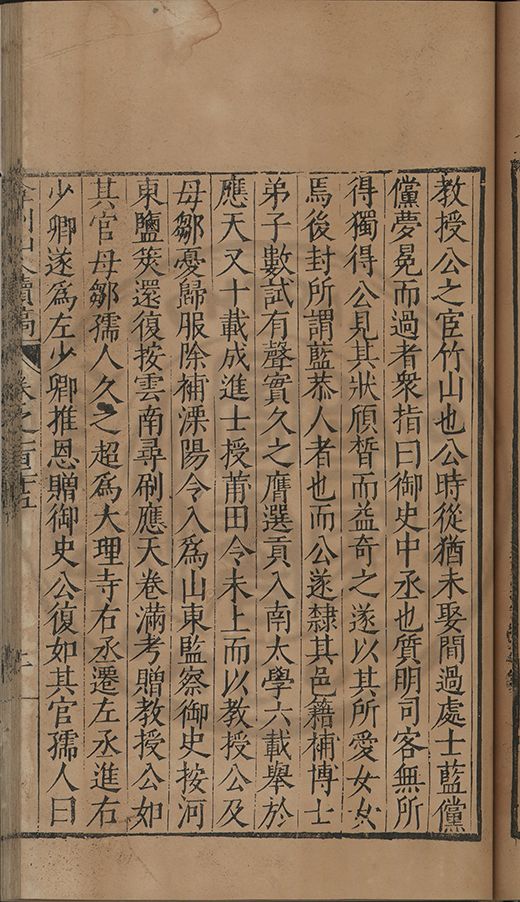 教授公之宦竹山也公時從猶未娶間過處士藍黨
黨夢冕而過者衆指曰御史中丞也質明司客無所
得獨得公見其狀頎皙而益奇之遂以其所愛女女
焉後封所謂藍恭人者也而公遂隸其邑籍補博士
弟子數試有聲實久之膺選貢入南太學六載舉於
應天又十載成進士授莆田令未上而以教授公及
母鄒憂歸服除補溧陽令入為山東監察御史按河
東鹽筴還復按雲南尋刷應天卷滿考贈教授公如
其官母鄒孺人久之超為大理寺右丞遷左丞進右
少卿遂為左少卿推恩贈御史公復如其官孺人曰
山人續稿 卷之一百